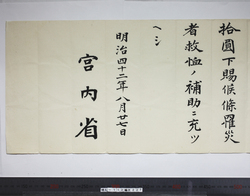 拾圓下賜候條罹災
者救恤ノ補助ニ充ツ
ヘシ
明治四十二年八月廿七日
宮内省